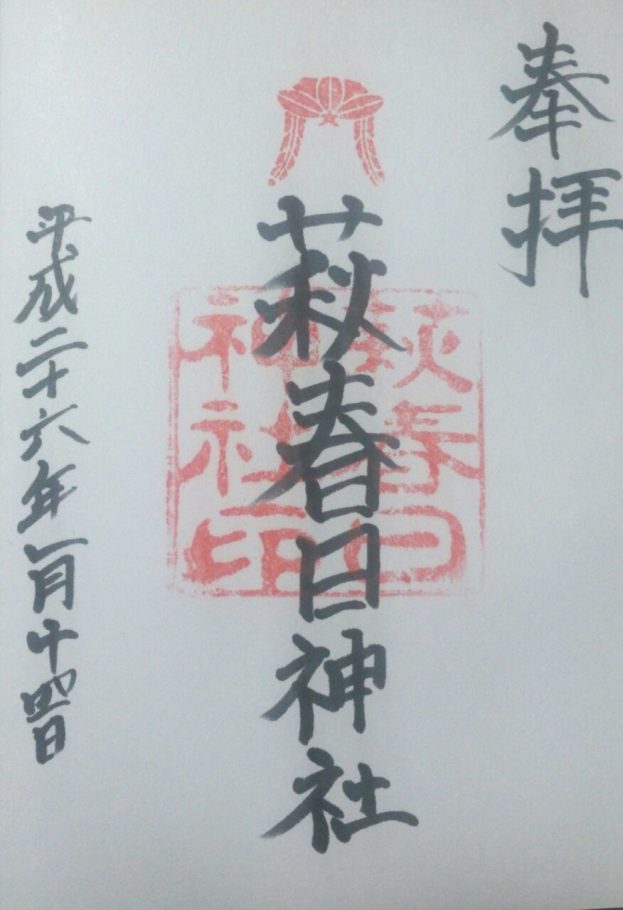 奉拝
萩春日神社
萩春日
神社印
平成二十六年一月十四日